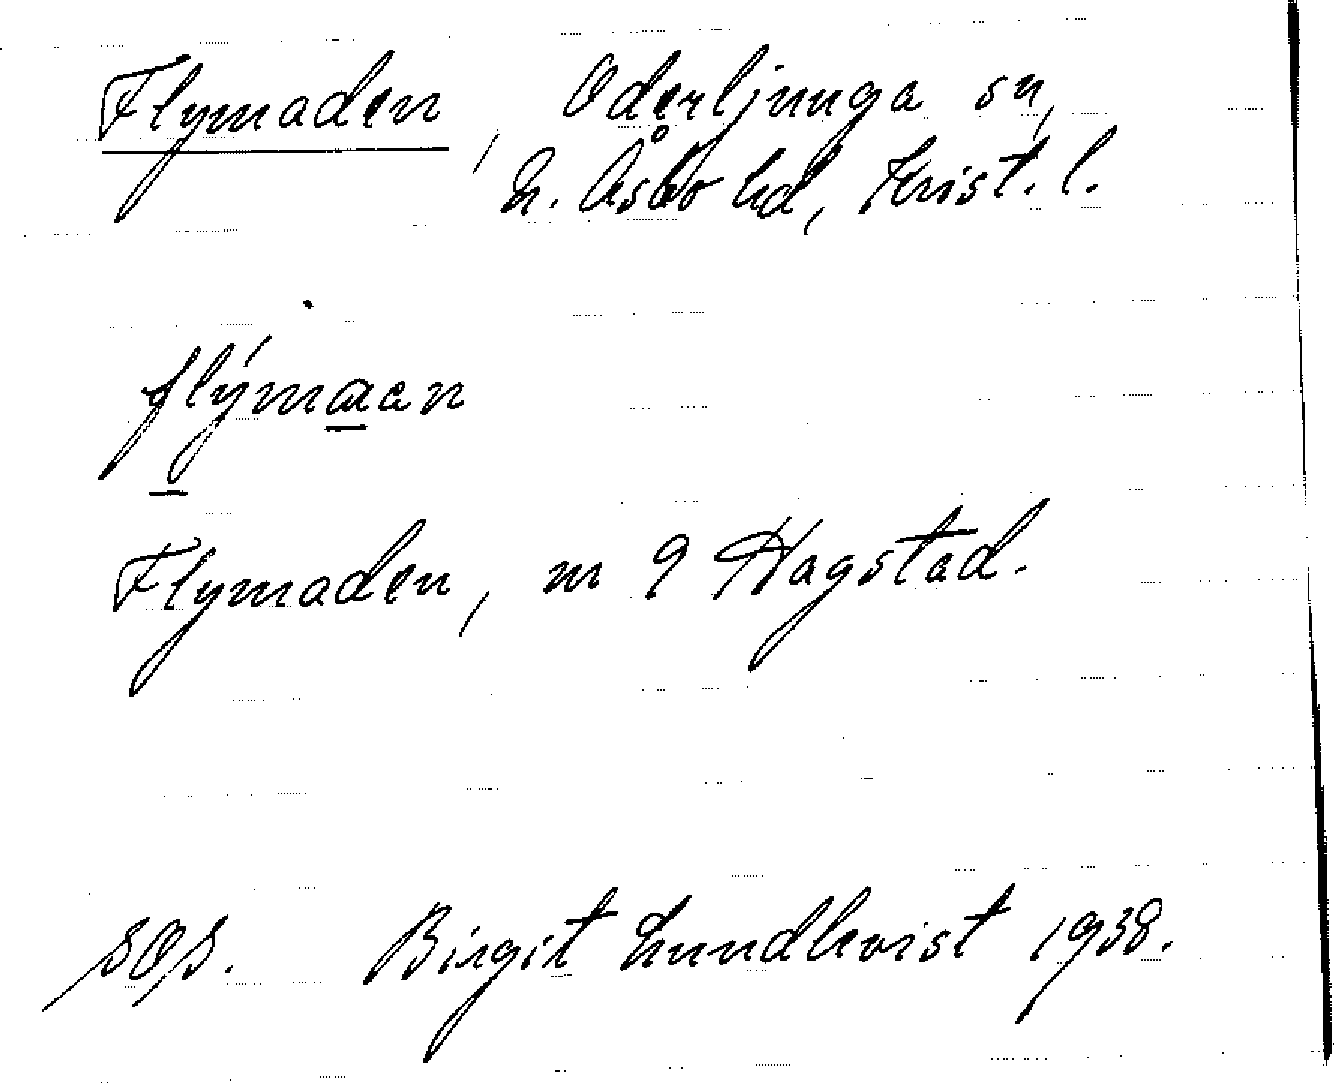 Flymaden, Oderljunga sn,
N. Åsbo hd, Krist. l.
flýmaan
Flymaden, nr 9 Hagstad.
SOS. Birgit Lundkvist 1938.